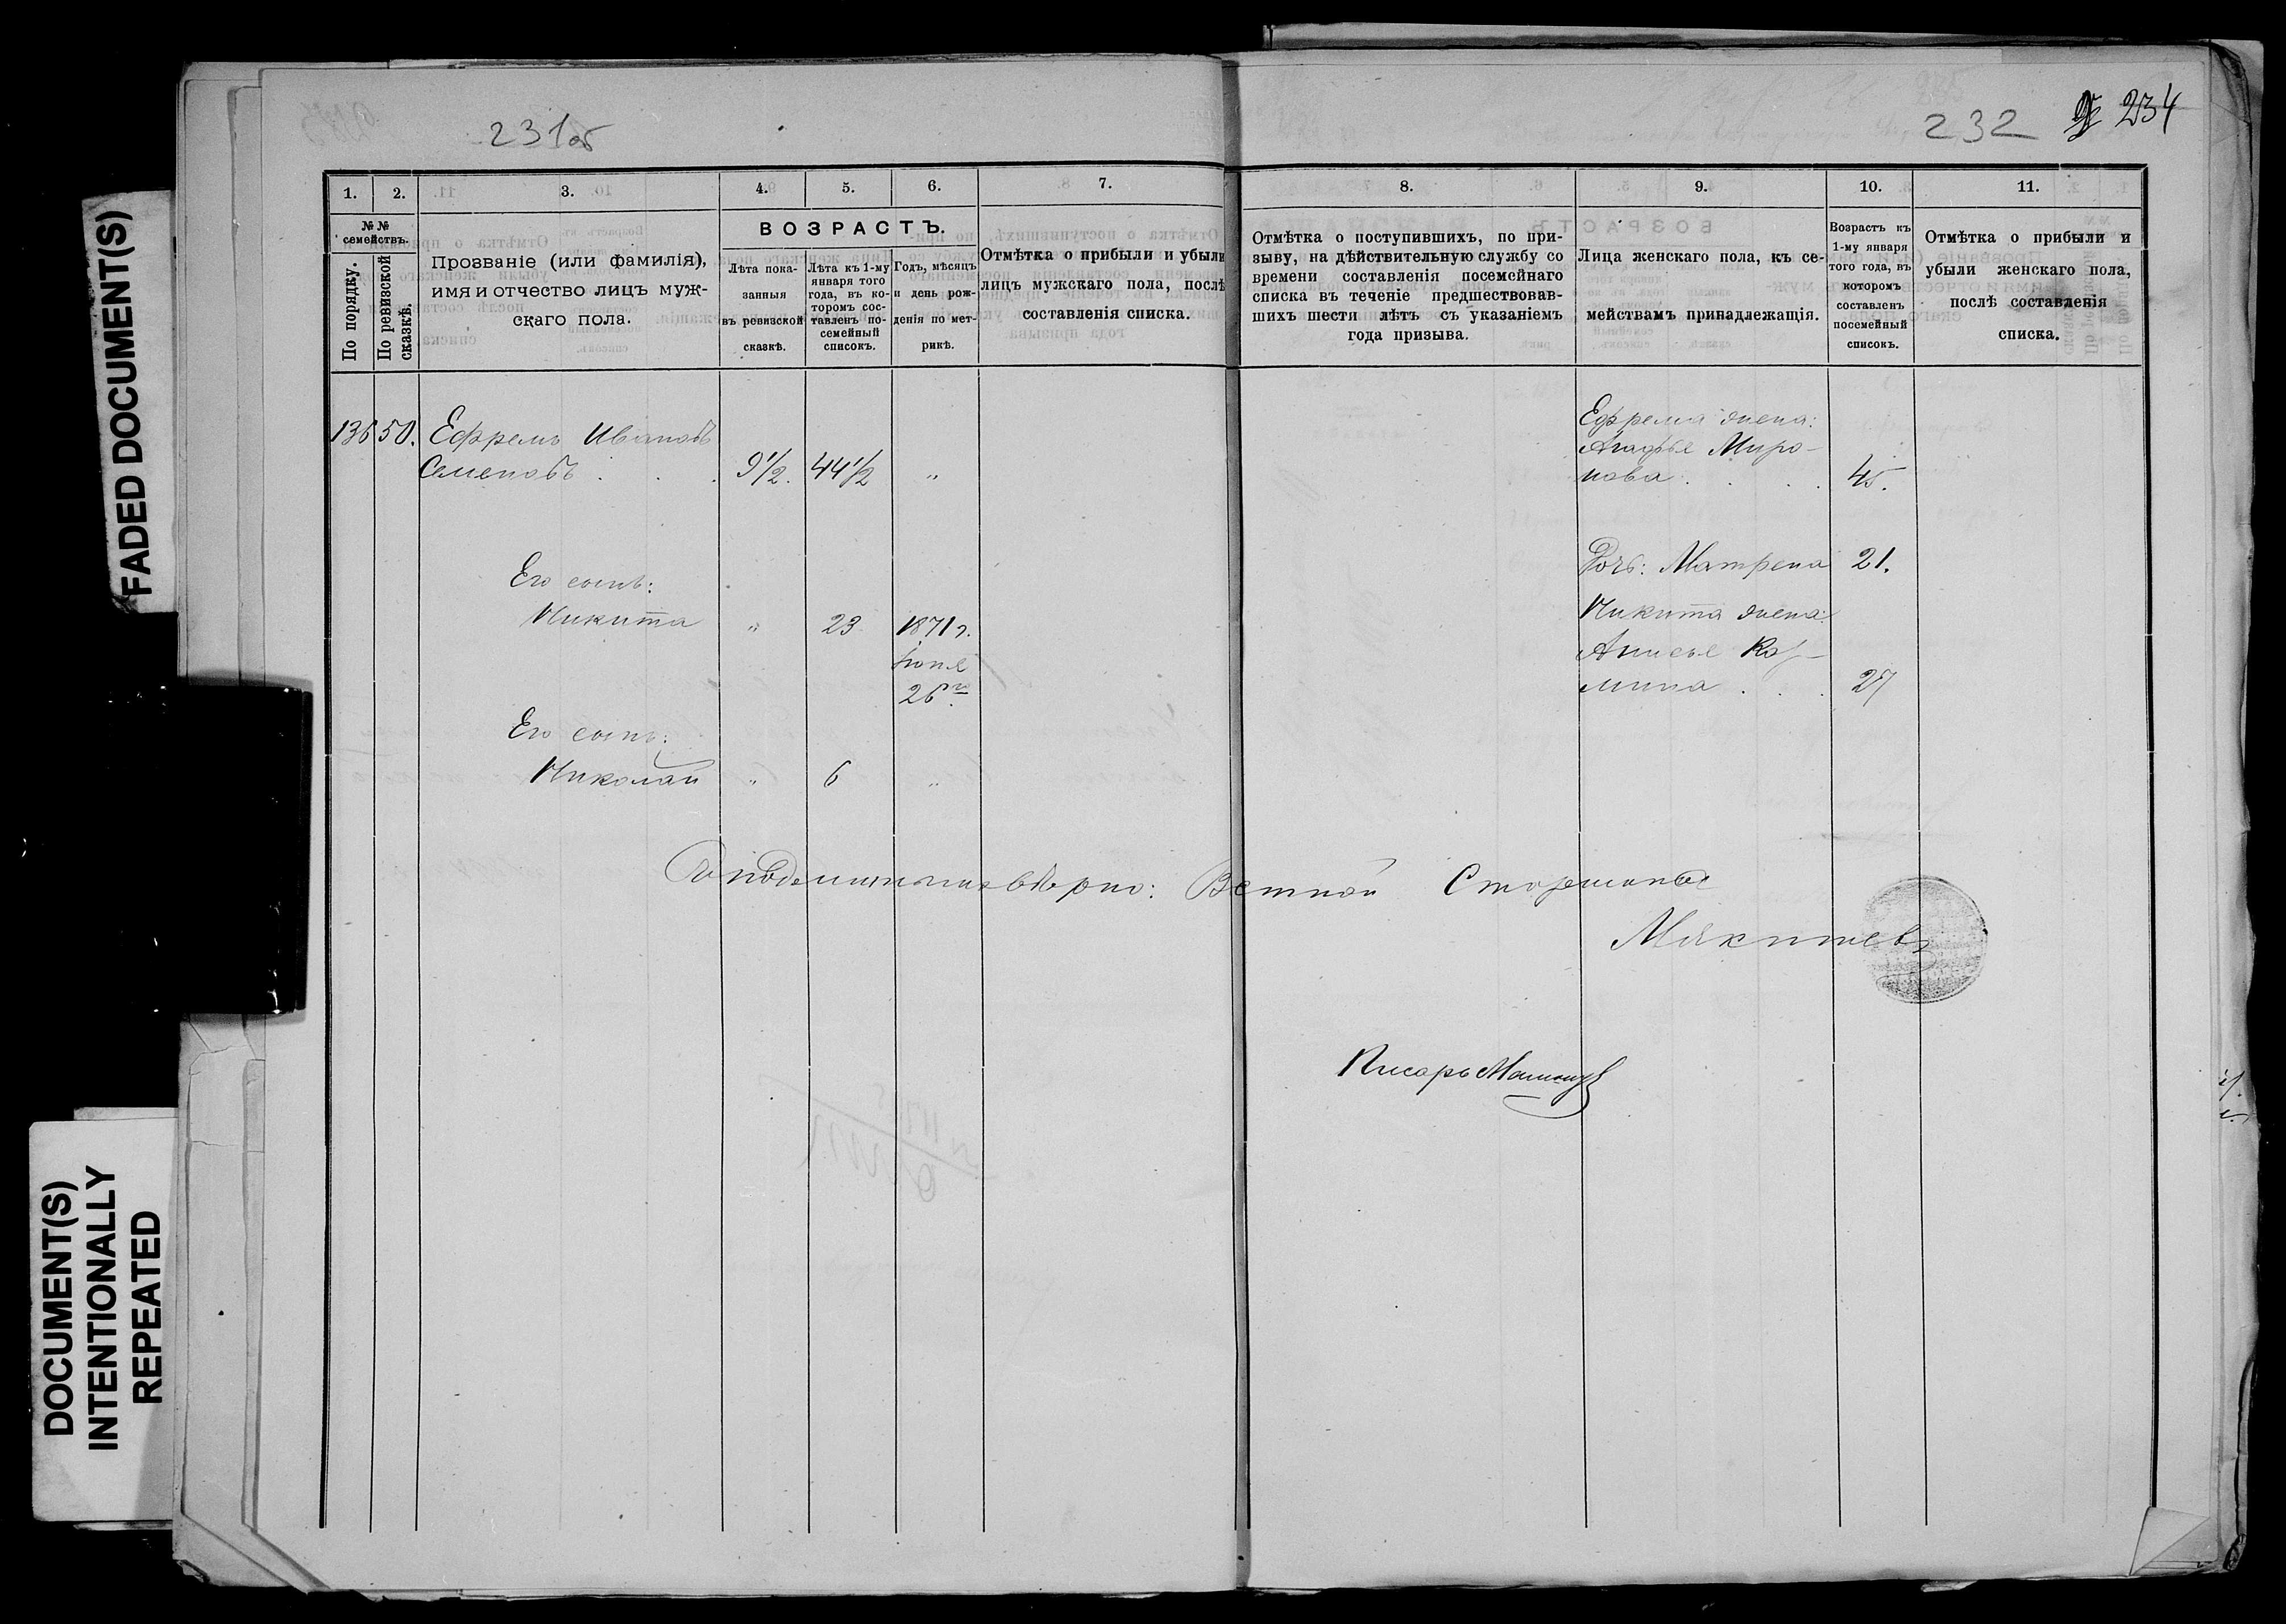 FADED DOCUMENT(S)
DOCUMENT(S)
INTENTIONALLY
REPEATED
231об
232 234
1. 2. 3. 4. 5. 6. 7. 8. 9. 10. 11.
№ №
семействъ.
По порядку.
По ревизской
сказкѣ.
Прозваніе (или фамилія),
имя и отчество лицъ муж-
скаго пола.
ВОЗРАСТЪ.
Лѣта пока-
занныя
въ ревизской
сказкѣ.
Лѣта къ 1-му
января того
года, въ ко-
торомъ сос-
тавленъ по-
семейный
списокъ.
Годъ, мѣсяцъ
и день рож-
денія по мет-
рикѣ.
Отмѣтка о прибыли и убыли
лицъ мужскаго пола, послѣ
составленія списка.
Отмѣтка о поступившихъ, по при-
зыву, на дѣйствительную службу со
времени составленія посемейнаго
списка въ теченіе предшествовав-
шихъ шести лѣтъ съ указаніемъ
года призыва.
Лица женскаго пола, къ се-
мействамъ принадлежащія.
Возрастъ къ
1-му января
того года, въ
которомъ
составленъ
посемейный
списокъ.
Отмѣтка о прибыли и
убыли женскаго пола,
послѣ составленія
списка.
136 50. Ефремъ Ивановъ
Семеновъ . . . 9½. 44½ „
Ефрема жена:
Агафья Миро-
нова . . . . 45.
Дочь: Матрена 21.
Его сынъ:
Никита „ 23 1871 г.
Іюня
26го
Никита жена:
Анисья Коз-
мина . . . 27
Его сынъ:
Николай „ 6 „
вѣрно: Старшина
Писарь